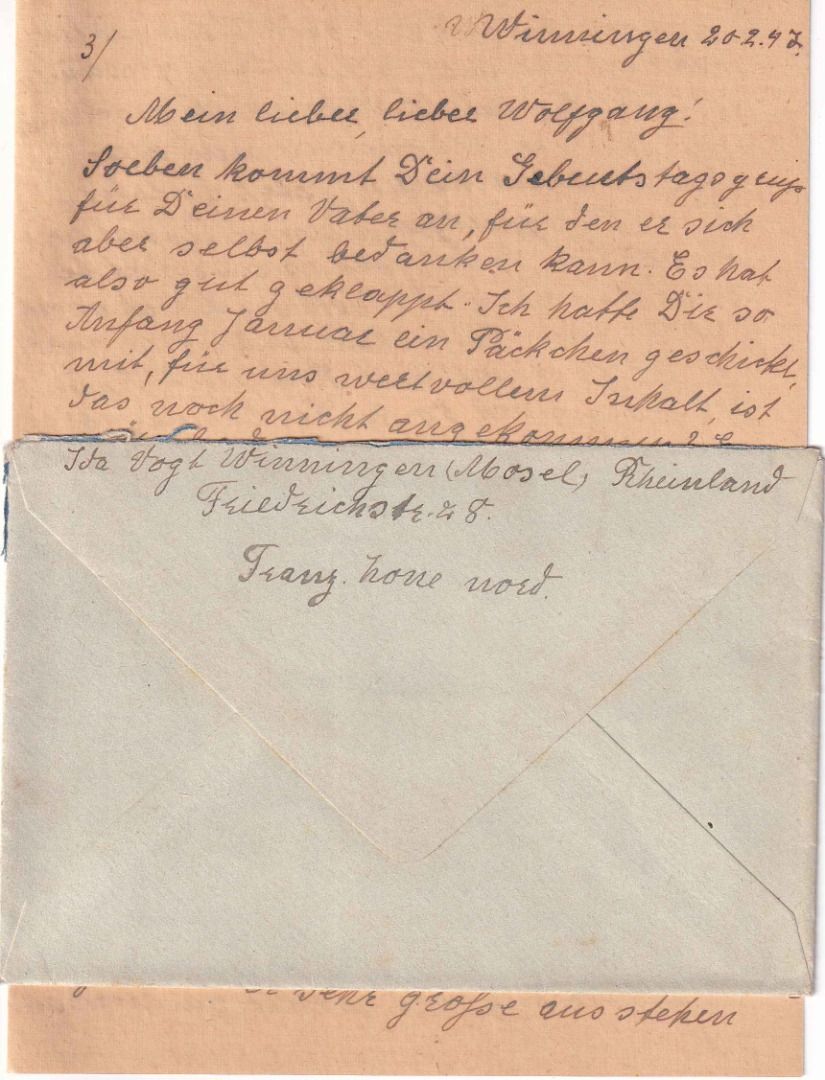 3/
Winningen 20.2.47.
Mein lieber, lieber Wolfgang!
Soeben kommt Dein Geburtstagsgruß
für Deinen Vater an, für den er sich
aber selbst bedanken kann. Es hat
also gut geklappt. Ich hatte Dir so
Anfang Januar ein Päckchen geschickt,
mit, für uns wertvollem Inhalt, ist
das noch nicht angekommen?
Ida Vogt Winningen (Mosel) Rheinland
Friedrichstr. 28.
Franz. Zone nord.
sehr große aus stehen